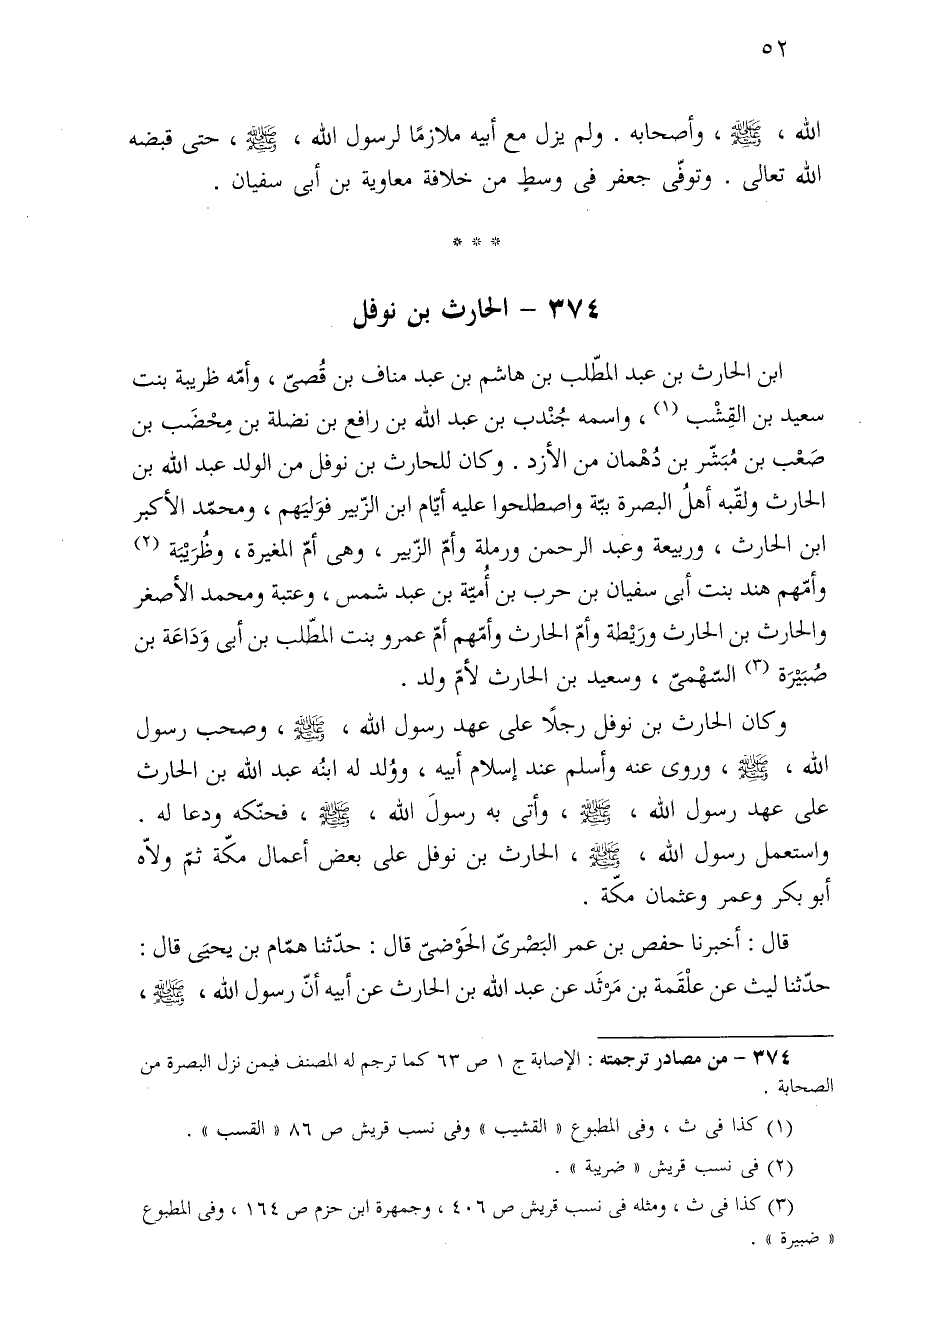 ٥٢
الله ، ﷺ ، وأصحابه . ولم يزل مع أبيه ملازمًا لرسول الله ، ﷺ ، حتى قبضه
الله تعالى . وتوفّى جعفر فى وسطٍ من خلافة معاوية بن أبى سفيان .
* * *
٣٧٤ - الحارث بن نوفل
ابن الحارث بن عبد المطّلب بن هاشم بن عبد مناف بن قُصىّ ، وأمّه ظريبة بنت
سعيد بن القِشْب (١) ، واسمه جُنْدب بن عبد الله بن رافع بن نضلة بن مِحْضَب بن
صَعْب بن مُبَشّر بن دُهْمان من الأزد . وكان للحارث بن نوفل من الولد عبد الله بن
الحارث ولقّبه أهلُ البصرة ببّة واصطلحوا عليه أيّام ابن الزّبير فوَليَهم ، ومحمّد الأكبر
ابن الحارث ، وربيعة وعبد الرحمن ورملة وأمّ الزّبير ، وهى أمّ المغيرة ، وظُرَيْبَة (٢)
وأمّهم هند بنت أبى سفيان بن حرب بن أُميّة بن عبد شمس ، وعتبة ومحمد الأصغر
والحارث بن الحارث ورَيْطة وأمّ الحارث وأمّهم أمّ عمرو بنت المطّلب بن أبى وَدَاعَة بن
صُبَيْرَة (٣) السّهْمىّ ، وسعيد بن الحارث لأمّ ولد .
وكان الحارث بن نوفل رجلًا على عهد رسول الله ، ﷺ ، وصحب رسول
الله ، ﷺ ، وروى عنه وأسلم عند إسلام أبيه ، ووُلد له ابنُه عبد الله بن الحارث
على عهد رسول الله ، ﷺ ، وأتى به رسولَ الله ، ﷺ ، فحنّكه ودعا له .
واستعمل رسول الله ، ﷺ ، الحارث بن نوفل على بعض أعمال مكّة ثمّ ولاّه
أبو بكر وعمر وعثمان مكّة .
قال : أخبرنا حفص بن عمر البَصْرىّ الحَوْضىّ قال : حدّثنا همّام بن يحيَى قال :
حدّثنا ليث عن علْقَمة بن مَرْثَد عن عبد الله بن الحارث عن أبيه أنّ رسول الله ، ﷺ ،
٣٧٤ - من مصادر ترجمته : الإصابة ج ١ ص ٦٣ كما ترجم له المصنف فيمن نزل البصرة من
الصحابة .
(١) كذا فى ث ، وفى المطبوع « القشيب » وفى نسب قريش ص ٨٦ « القسب » .
(٢) فى نسب قريش « ضريبة » .
(٣) كذا فى ث ، ومثله فى نسب قريش ص ٤٠٦ ، وجمهرة ابن حزم ص ١٦٤ ، وفى المطبوع
« ضبيرة » .